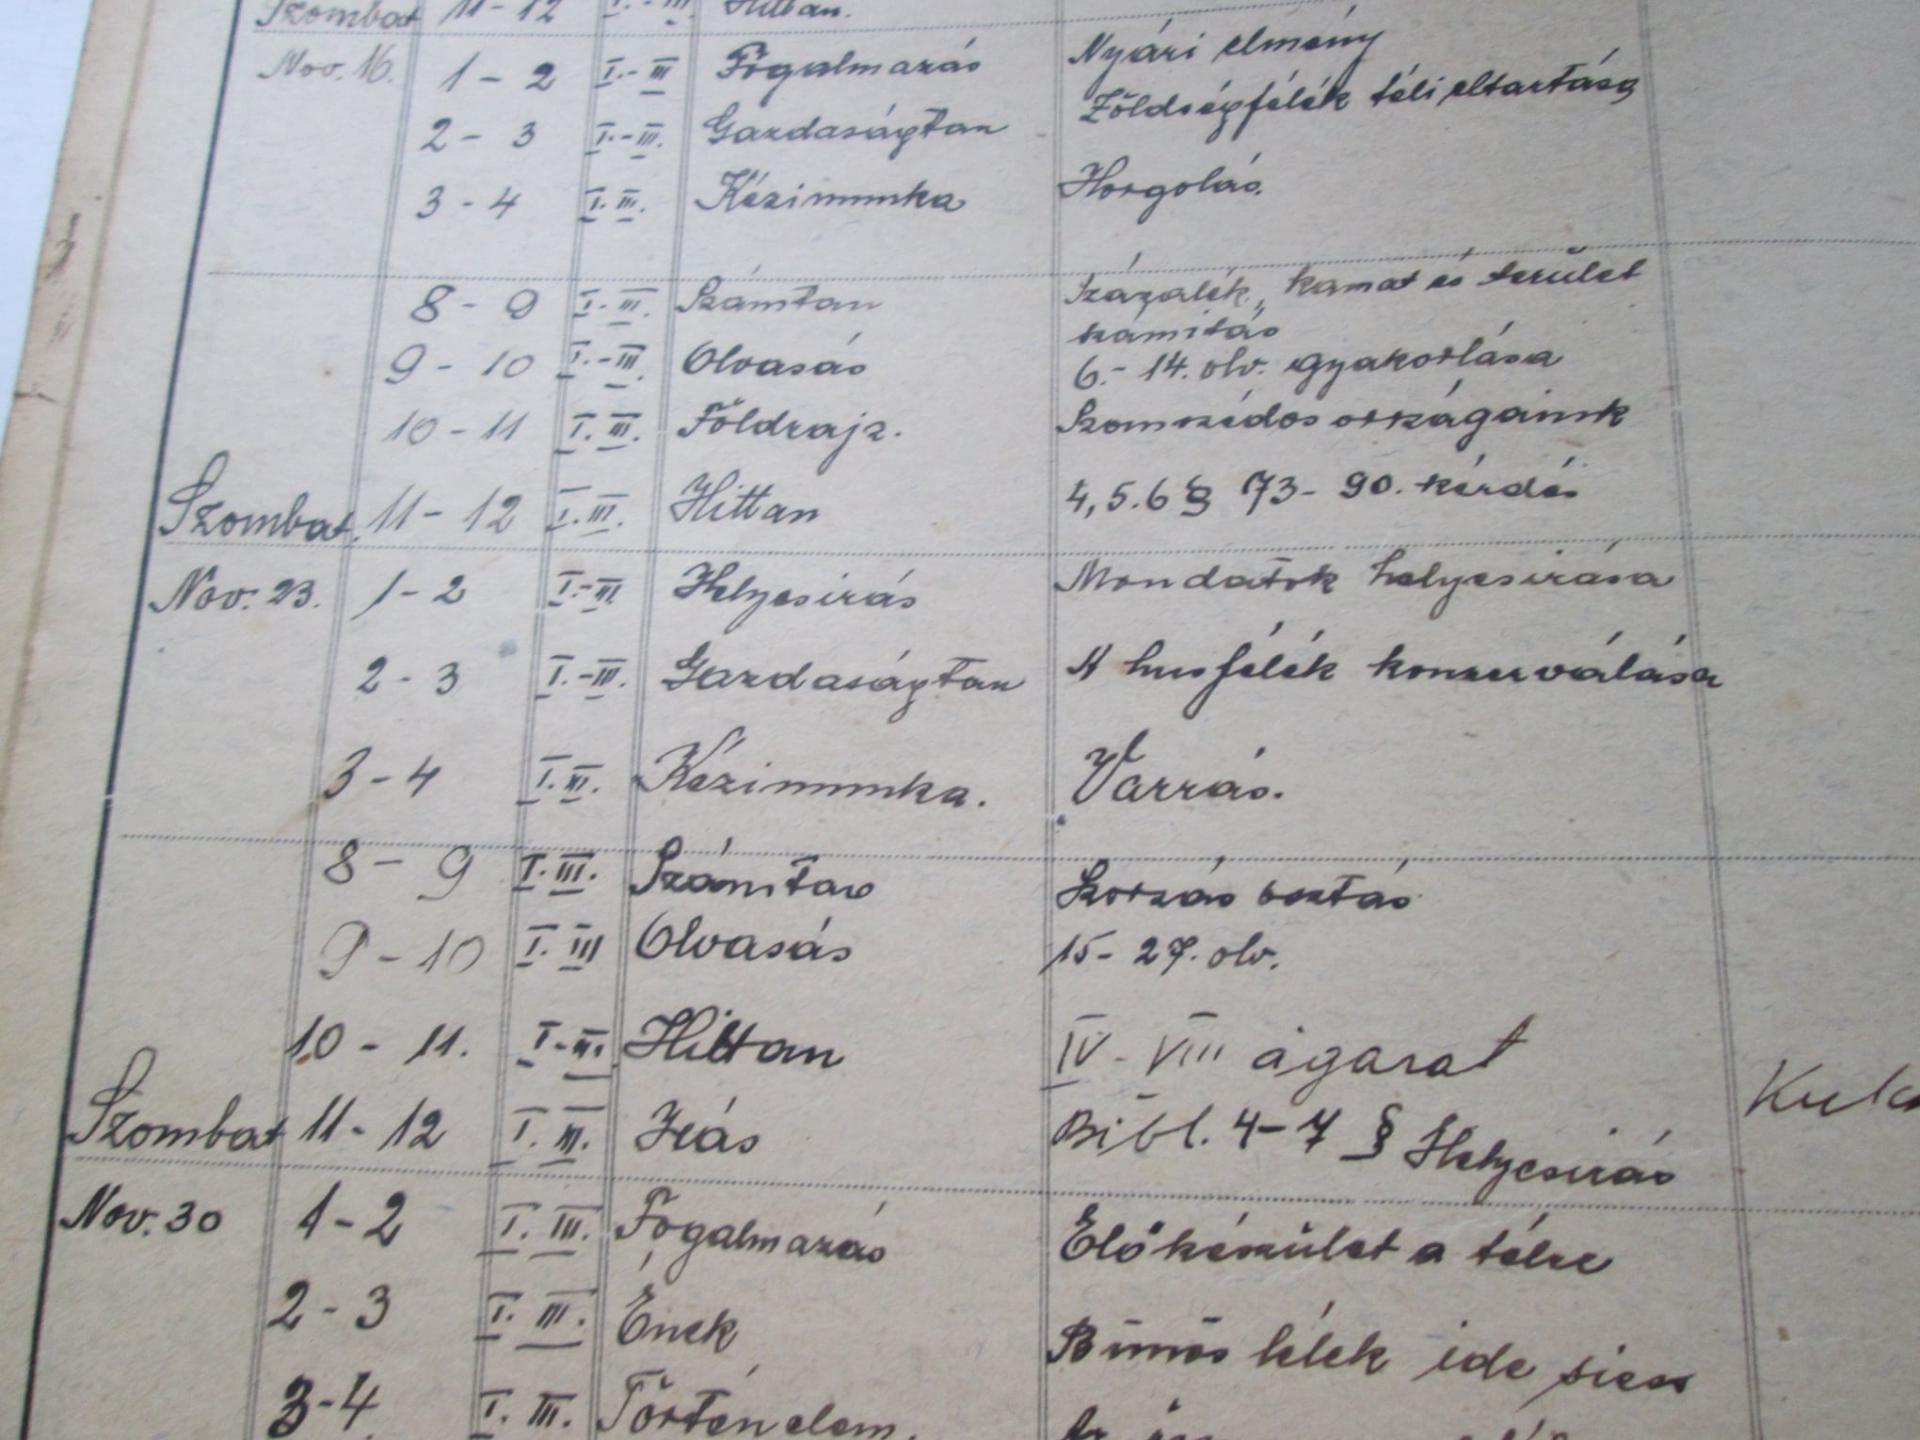 Szombat 11-12 I.-III. Hittan.
Nov. 16. 1-2 I.-III Fogalmazás Nyári élmény
2-3 I.-III. Gazdaságtan Zöldségfélék téli eltartása
3-4 I. III. Kézimunka Horgolás.
8-9 I.-III. Számtan Százalék, kamat és terület
számitás
9-10 I.-III. Olvasás 6.-14. olv. gyakorlása
10-11 I. III. Földrajz. Szomszédos országaink
Szombat. 11-12 I. III. Hittan 4, 5. 6 § 73-90. kérdés
Nov. 23. 1-2 I.-III Helyesirás Mondatok helyesirása
2-3 I.-III. Gazdaságtan A husfélék konzerválása
3-4 I. III. Kézimunka. Varrás.
8-9 I. III. Számtan Szorzás osztás
9-10 I. III Olvasás 15-27. olv.
10-11. I-III. Hittan IV-VIII ágazat
Szombat 11-12 I. III. Irás Bibl. 4-7 § Helyesirás
Nov. 30 1-2 I. III. Fogalmazás Előkészület a télre
2-3 I. III. Ének Bünös lélek ide siess
3-4 I. III. Történelem.